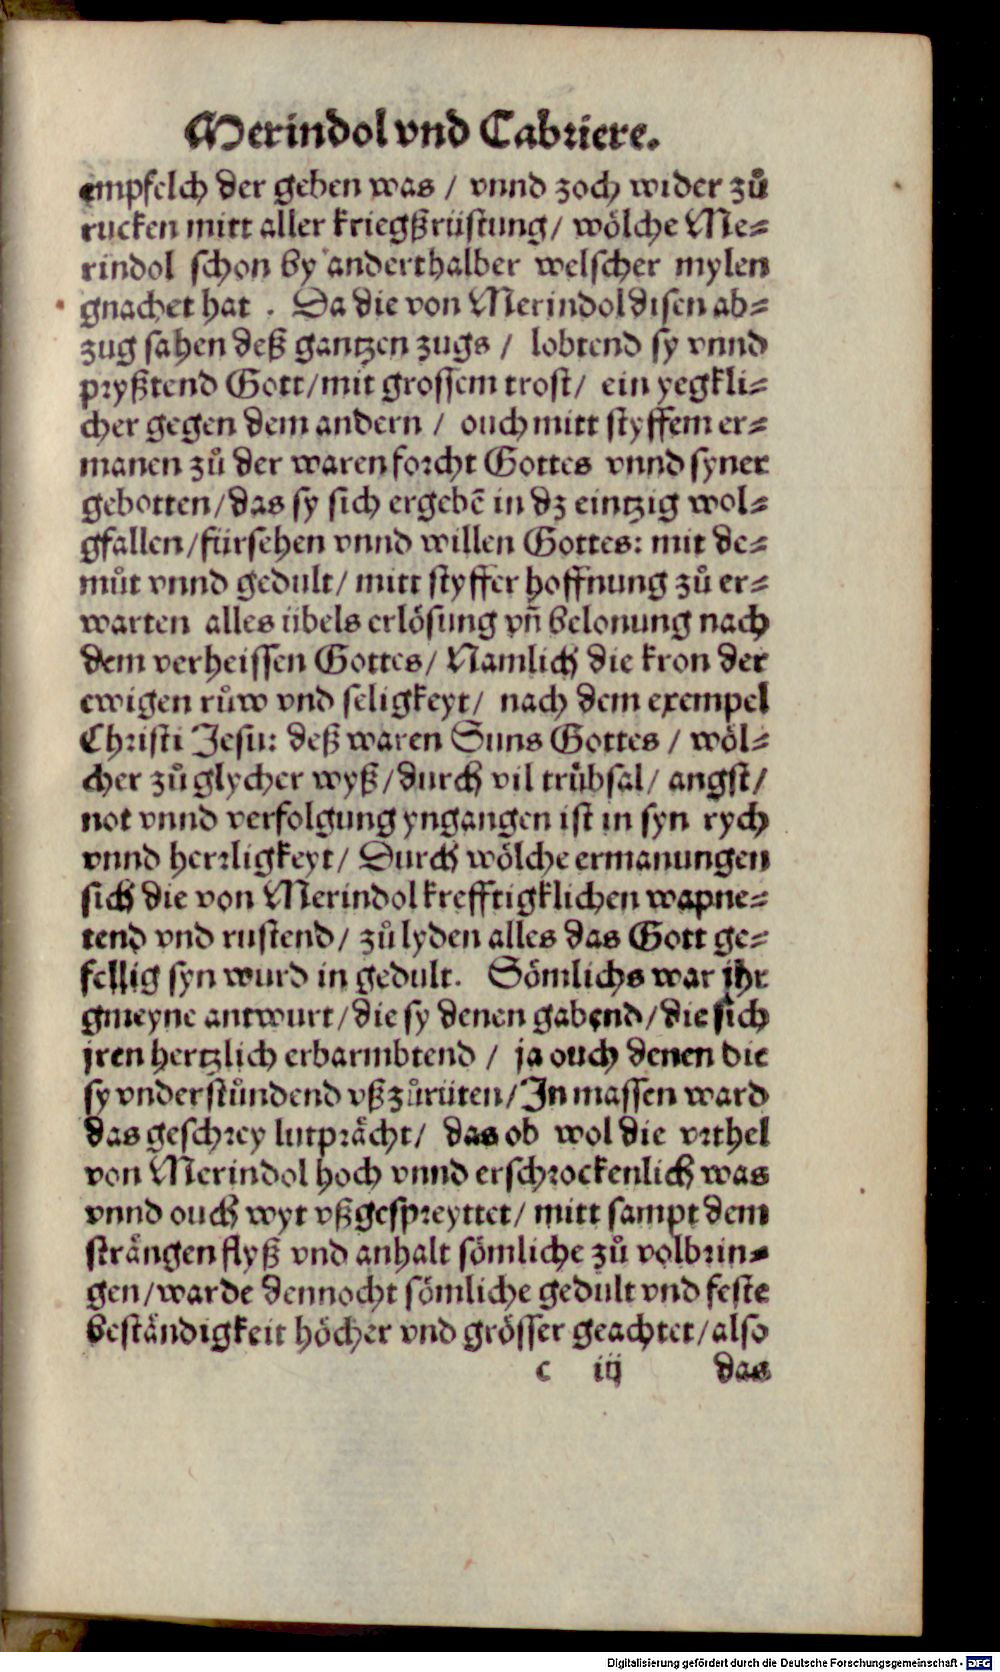 Merindol vnd Cabriere.
empfelch der geben was / vnnd zoch wider zů
rucken mitt aller kriegßrüstung / wölche Me⸗
rindol schon by anderthalber welscher mylen
gnachet hat . Da die von Merindol disen ab⸗
zug sahen deß gantzen zugs / lobtend sy vnnd
pryßtend Gott / mit grossem trost / ein yegkli⸗
cher gegen dem andern / ouch mitt styffem er⸗
manen zů der waren forcht Gottes vnnd syner
gebotten / das sy sich ergebē in dz eintzig wol⸗
gfallen / fürsehen vnnd willen Gottes: mit de⸗
můt vnnd gedult / mitt styffer hoffnung zů er⸗
warten alles übels erlösung vñ belonung nach
dem verheissen Gottes / Namlich die kron der
ewigen růw vnd seligkeyt / nach dem exempel
Christi Jesu: deß waren Suns Gottes / wöl⸗
cher zů glycher wyß / durch vil trübsal / angst /
not vnnd verfolgung yngangen ist in syn rych
vnnd herrligkeyt / Durch wölche ermanungen
sich die von Merindol krefftigklichen wapne⸗
tend vnd rustend / zů lyden alles das Gott ge⸗
fellig syn wurd in gedult. Sömlichs war jhr
gmeyne antwurt / die sy denen gabend / die sich
jren hertzlich erbarmbtend / ja ouch denen die
sy vnderstůndend vßzůrüten / In massen ward
das geschrey lutprächt / das ob wol die vrthel
von Merindol hoch vnnd erschrockenlich was
vnnd ouch wyt vßgespreyttet / mitt sampt dem
strängen flyß vnd anhalt sömliche zů volbrin⸗
gen / warde dennocht sömliche gedult vnd feste
beständigkeit höcher vnd grösser geachtet / also
c iij das
Digitalisierung gefördert durch die Deutsche Forschungsgemeinschaft - DFG